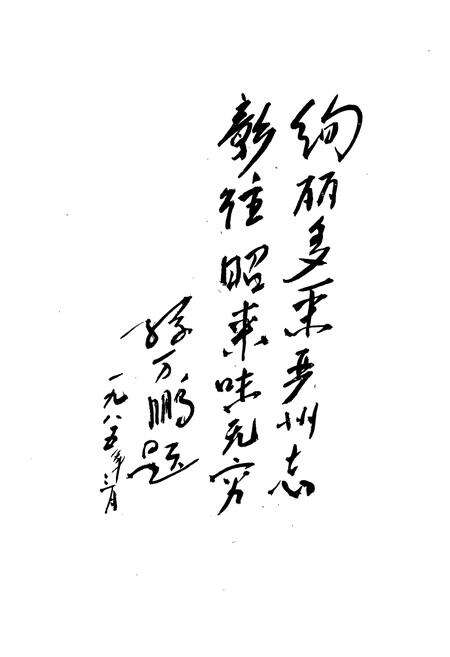 绚丽多采严州志
彰往昭来味无穷
孙万鹏题
一九八五年三月